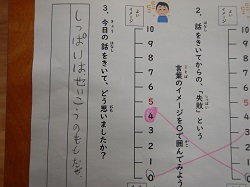 2、話をきいてからの、「失敗」という
言葉のイメージを○で囲んでみよう
10
9
8
7
6
5
4
3
2
1
0
10
9
8
7
6
5
4
3
2
1
0
3、今日の話をきいて、どう思いましたか？
しっぱいはせいこうのもとだぜ。